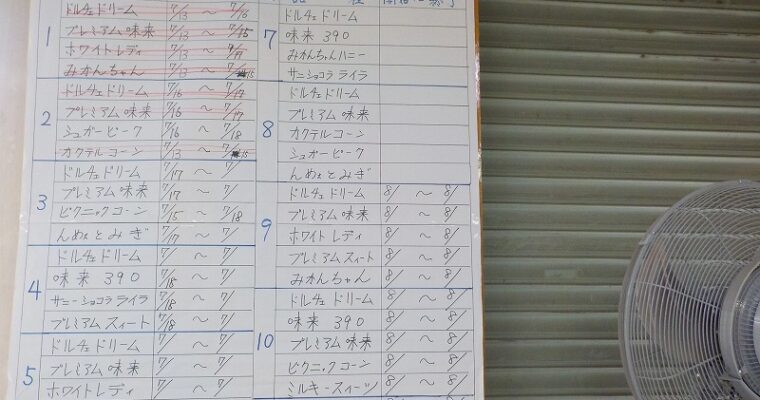 1
ドルチェドリーム 7/13 ～ 7/16
プレミアム味来 7/13 ～ 7/15
ホワイトレディ 7/13 ～ 7/17
みかんちゃん 7/13 ～ 7/15
2
ドルチェドリーム 7/15 ～ 7/17
プレミアム味来 7/16 ～ 7/17
シュガーピーク 7/16 ～ 7/18
カクテルコーン 7/13 ～ 7/15
3
ドルチェドリーム 7/17 ～ 7/
プレミアム味来 7/17 ～ 7/
ピクニックコーン 7/15 ～ 7/18
んめぇとみぎ 7/17 ～ 7/
4
ドルチェドリーム 7/ ～ 7/
味来 390 7/18 ～ 7/
サニーショコラライラ 7/18 ～ 7/
プレミアムスィート 7/18 ～ 7/
5
ドルチェドリーム 7/ ～ 7/
プレミアム味来 7/ ～ 7/
ホワイトレディ 7/ ～ 7/
7
ドルチェドリーム
味来 390
みかんちゃんハニー
サニショコラライラ
8
ドルチェドリーム
プレミアム味来
カクテルコーン
シュガーピーク
んめぇとみぎ
9
ドルチェドリーム 8/ ～ 8/
プレミアム味来 8/ ～ 8/
ホワイトレディ 8/ ～ 8/
プレミアムスィート 8/ ～ 8/
みかんちゃん 8/ ～ 8/
10
ドルチェドリーム 8/ ～ 8/
味来 390 8/ ～ 8/
プレミアム味来 8/ ～ 8/
ピクニックコーン 8/ ～ 8/
ミルキースイーツ 8/ ～ 8/